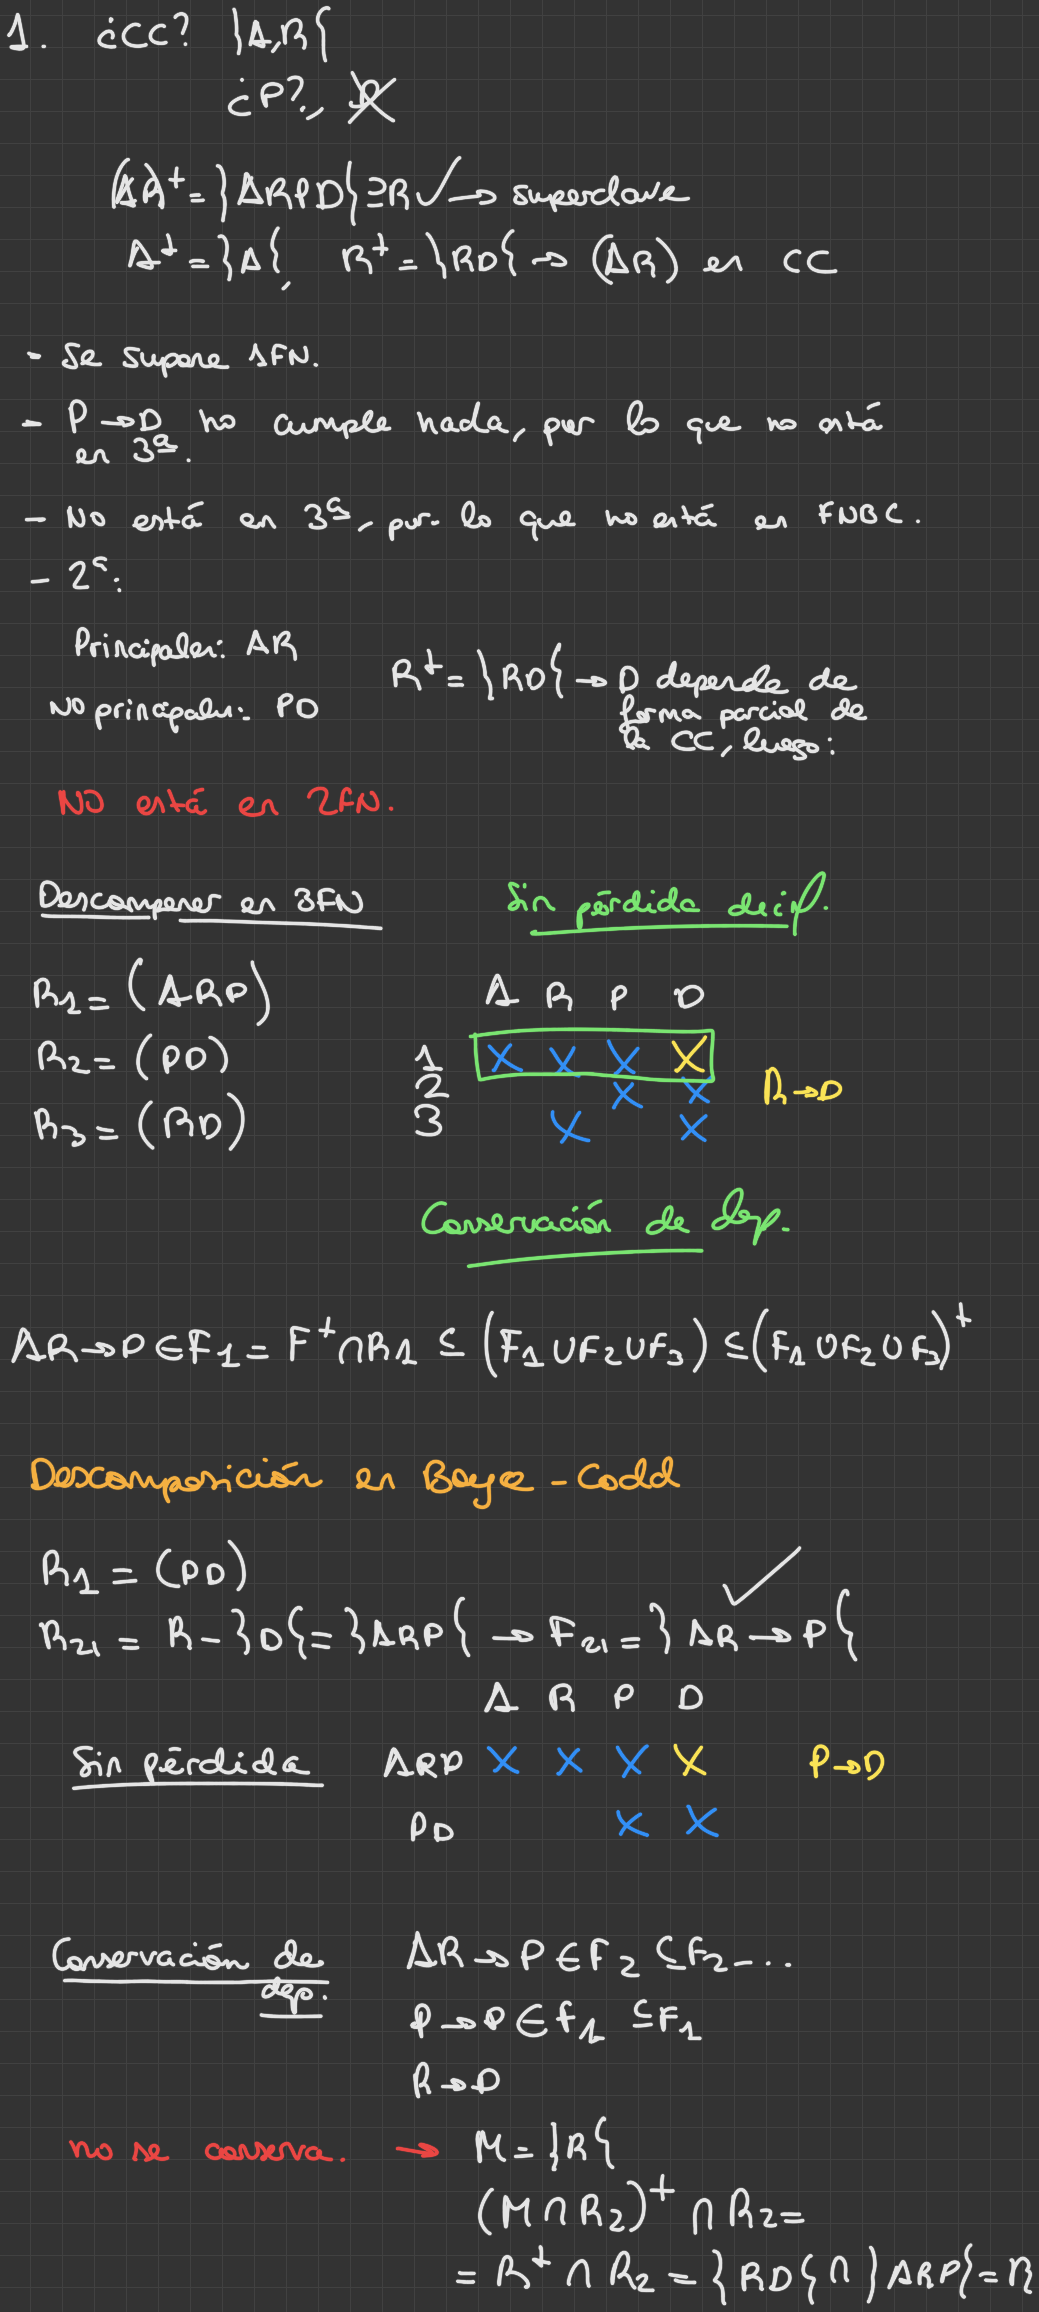 1. ¿CC? }A,R{
¿P?, R
(AR)⁺ = }ARPD{ ⊇R ✓ → superclave
A⁺ = }A{, R⁺ = }RD{ → (AR) es CC
- Se supone 1FN.
- P → D no cumple nada, por lo que no está
en 3ª.
- No está en 3ª, por lo que no está en FNBC.
- 2ª:
Principales: AR
No principales: PD
R⁺ = }RD{ → D depende de
forma parcial de
la CC, luego:
NO está en 2FN.
Descomponer en 3FN
Sin pérdida de inf.
R1 = (ARP)
R2 = (PD)
R3 = (RD)
A R P D
1 X X X X
2 X X
3 X X
R → D
Conservación de dep.
AR → P ∈ F1 = F⁺ ∩ R1 ⊆ (F1 ∪ F2 ∪ F3) ⊆ (F1 ∪ F2 ∪ F3)⁺
Descomposición en Boyce - Codd
R1 = (PD) ✓
R21 = R - }D{ = }ARP{ → F21 = } AR → P{
A R P D
Sin pérdida ARP X X X X P → D
PD X X
Conservación de
dep.
AR → P ∈ F2 ⊆ F2 - ..
P → D ∈ F1 ⊆ F1
R → D
no se conserva. → M = }R{
(M ∩ R2)⁺ ∩ R2 =
= R⁺ ∩ R2 = } RD{ ∩ } ARP{ = R